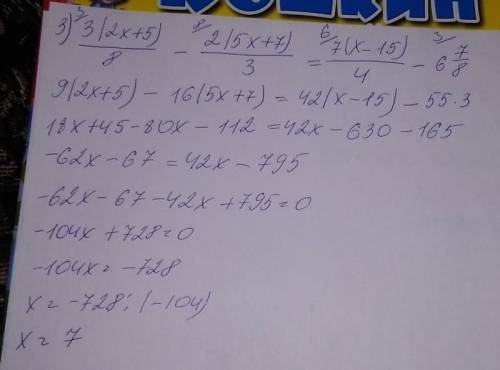 ЮШКИН
3) 3(2x+5)/8 - 2(5x+7)/3 = 7(x-15)/4 - 6 7/8
3/ 8/ 6/ 3/
9(2x+5) - 16(5x+7) = 42(x-15) - 55·3
18x+45-80x-112=42x-630-165
-62x-67=42x-795
-62x-67-42x+795=0
-104x+728=0
-104x=-728
x=-728:(-104)
x=7